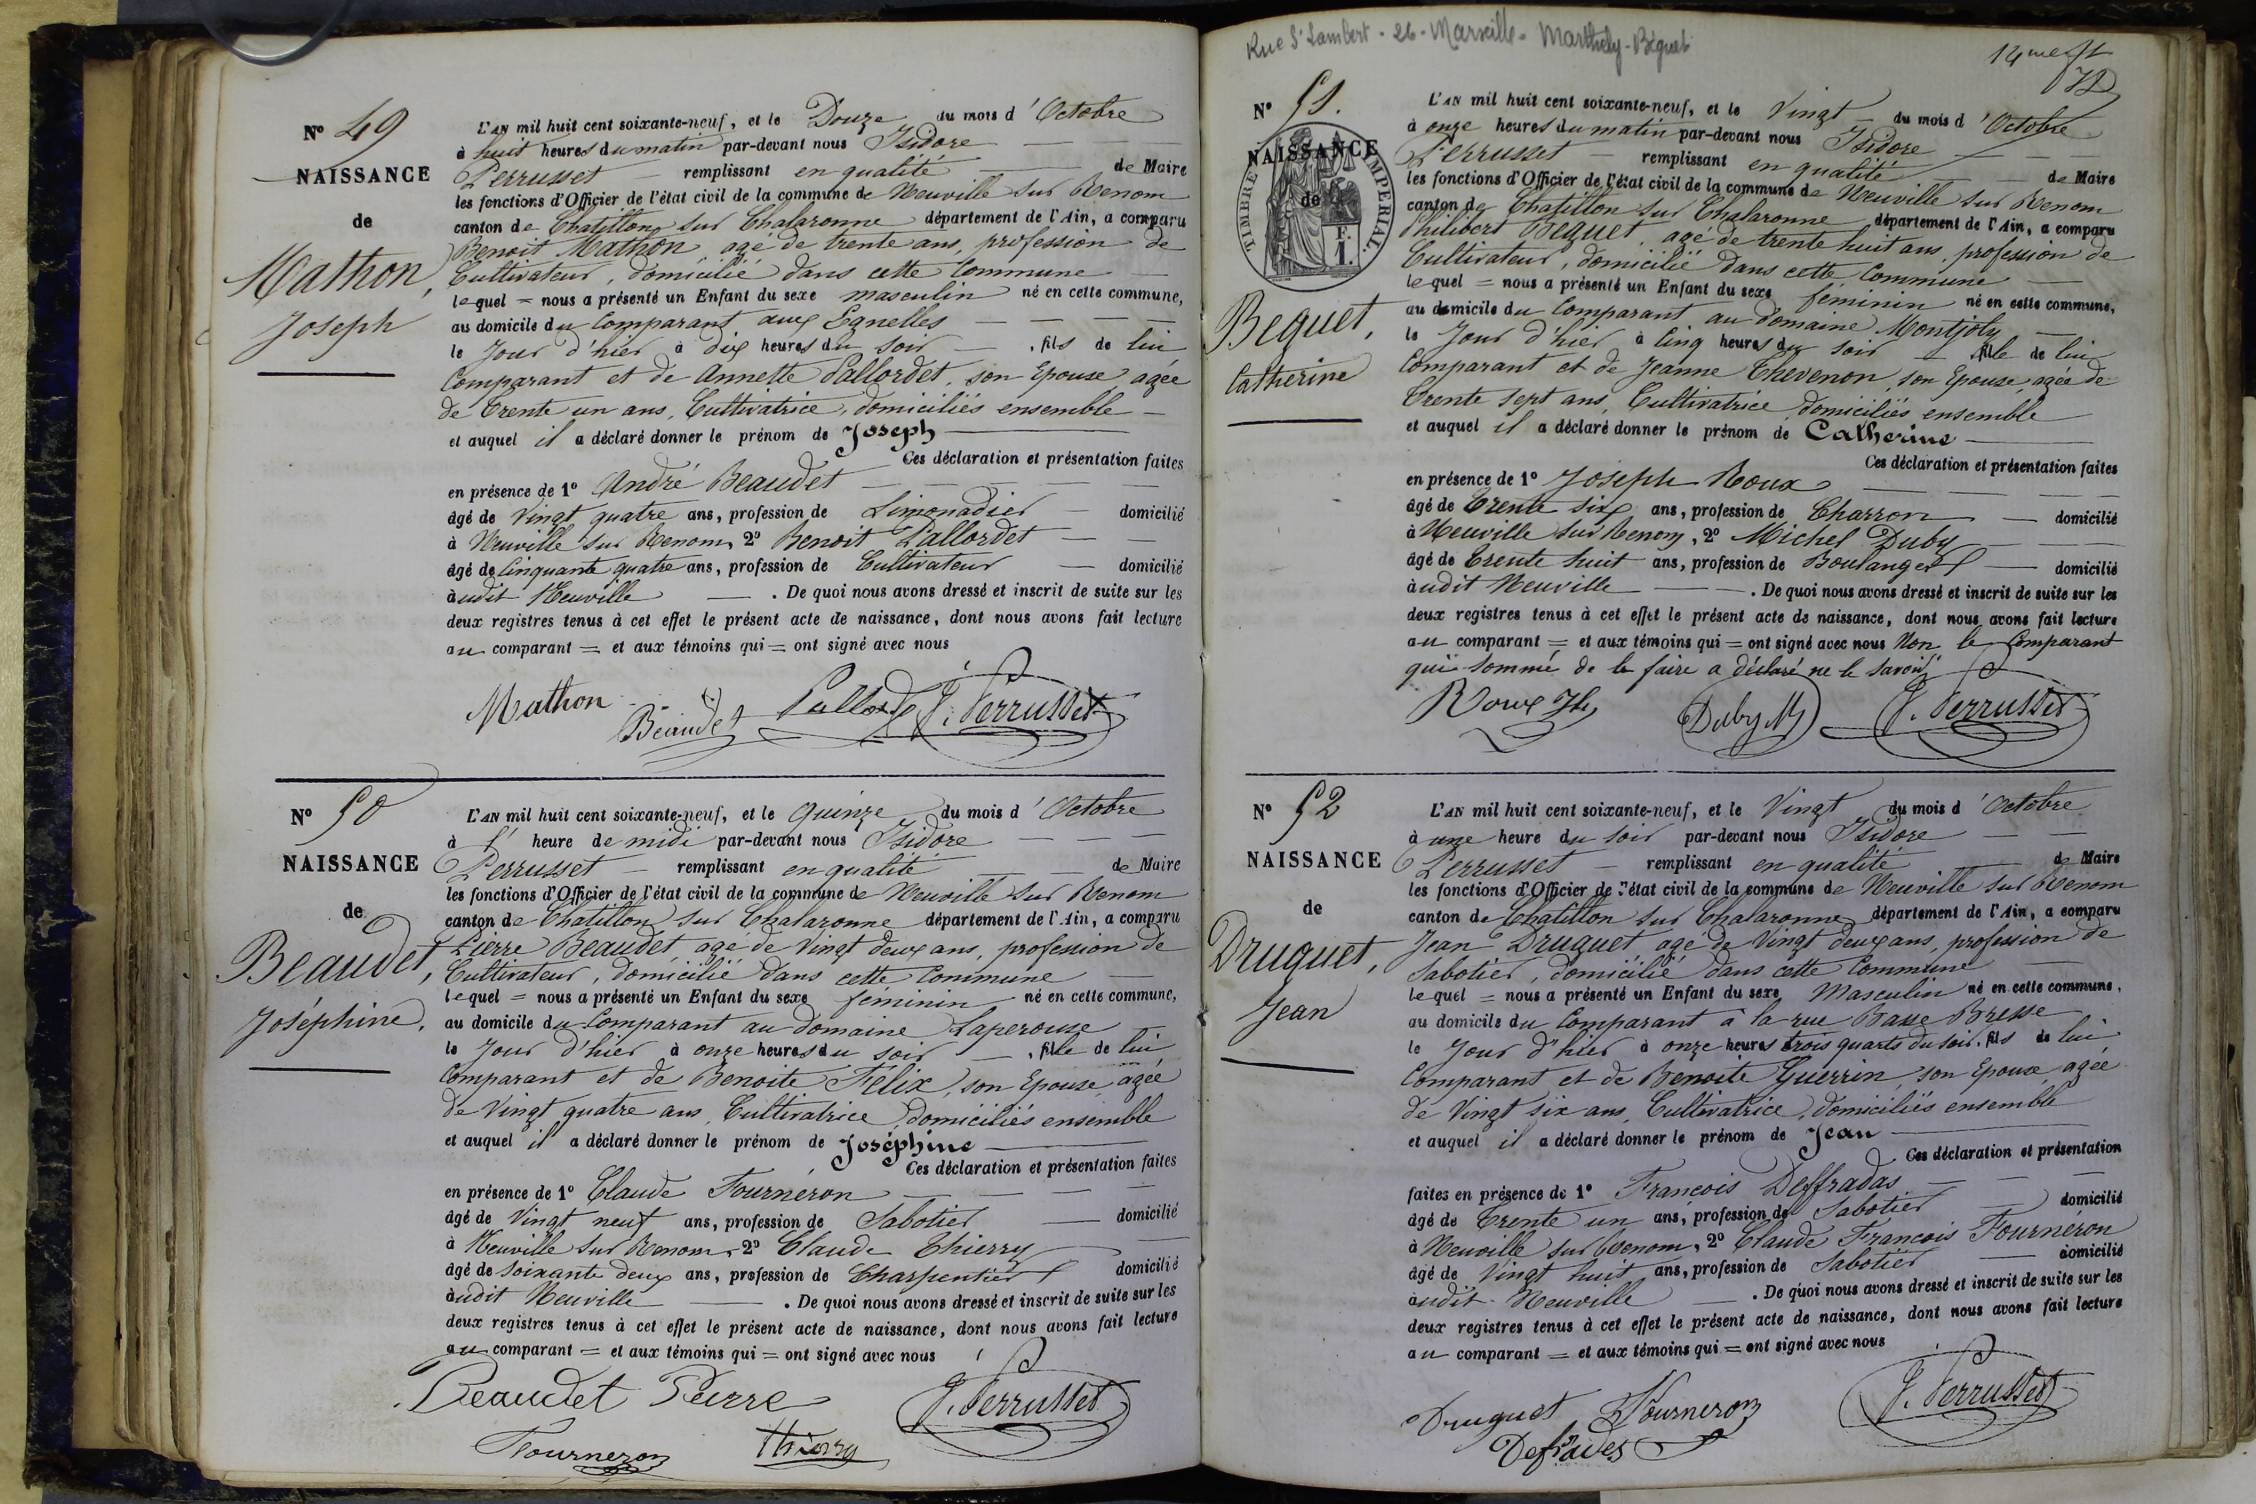 N° 49
NAISSANCE
de
Mathon,
Joseph
L'AN mil huit cent soixante-neuf, et le Douze du mois d'Octobre
à huit heures du matin par-devant nous Isidore
Perrusset remplissant en qualité de Maire
les fonctions d'Officier de l'état civil de la commune de Neuville sur Renom
canton de Chatillon sur Chalaronne département de l'Ain, a comparu
Benoit Mathon agé de trente ans, profession de
Cultivateur, domicilié dans cette Commune
lequel = nous a présenté un Enfant du sexe masculin né en cette commune,
au domicile du Comparant aux Egnelles
le Jour d'hier à dix heures du soir, fils de lui
Comparant et de Annette Pallordet, son Epouse, agée
de Trente un ans, Cultivatrice, domiciliés ensemble
et auquel il a déclaré donner le prénom de Joseph
Ces déclaration et présentation faites
en présence de 1° André Beaudet
âgé de Vingt quatre ans, profession de Limonadier domicilié
à Neuville sur Renom, 2° Benoit Pallordet
âgé de Cinquante quatre ans, profession de Cultivateur domicilié
àudit Neuville. De quoi nous avons dressé et inscrit de suite sur les
deux registres tenus à cet effet le présent acte de naissance, dont nous avons fait lecture
au comparant = et aux témoins qui = ont signé avec nous
Mathon Beaudet J. Perrusset
N° 50
NAISSANCE
de
Beaudet,
Joséphine,
L'AN mil huit cent soixante-neuf, et le quinze du mois d'Octobre
à l' heure de midi par-devant nous Isidore
Perrusset remplissant en qualité de Maire
les fonctions d'Officier de l'état civil de la commune de Neuville sur Renom
canton de Chatillon sur Chalaronne département de l'Ain, a comparu
Pierre Beaudet agé de Vingt deux ans, profession de
Cultivateur, domicilié dans cette Commune
lequel = nous a présenté un Enfant du sexe féminin né en cette commune,
au domicile du Comparant au domaine Laperouse
le Jour d'hier à onze heures du soir, fille de lui
Comparant et de Benoite Félix, son Epouse, agée
de Vingt quatre ans, Cultivatrice, domiciliés ensemble
et auquel il a déclaré donner le prénom de Joséphine
Ces déclaration et présentation faites
en présence de 1° Claude Fournéron
âgé de Vingt neuf ans, profession de Sabotier domicilié
à Neuville sur Renom, 2° Claude Thierry
âgé de soixante deux ans, profession de Charpentier domicilié
àudit Neuville. De quoi nous avons dressé et inscrit de suite sur les
deux registres tenus à cet effet le présent acte de naissance, dont nous avons fait lecture
au comparant = et aux témoins qui = ont signé avec nous
Beaudet Pierre J. Perrusset
Fourneron Thierry
Rue St Lambert - 26 - Marseille - Béguet
N° 51.
NAISSANCE
de
TIMBRE IMPERIAL.
F.
1.
Bequet,
Catherine
L'AN mil huit cent soixante-neuf, et le Vingt du mois d'Octobre
à onze heures du matin par-devant nous Isidore
Perrusset remplissant en qualité de Maire
les fonctions d'Officier de l'état civil de la commune de Neuville sur Renom
canton de Chatillon sur Chalaronne département de l'Ain, a comparu
Philibert Bequet, agé de trente huit ans, profession de
Cultivateur, domicilié dans cette Commune
lequel = nous a présenté un Enfant du sexe féminin né en cette commune,
au domicile du Comparant au domaine Montjoly
le Jour d'hier à Cinq heures du soir fille de lui
Comparant et de Jeanne Thevenon, son Epouse, agée de
Trente sept ans, Cultivatrice, domiciliés ensemble
et auquel il a déclaré donner le prénom de Catherine
Ces déclaration et présentation faites
en présence de 1° Joseph Roux
âgé de Trente six ans, profession de Charron domicilié
à Neuville sur Renom, 2° Michel Duby
âgé de Trente huit ans, profession de Boulanger domicilié
àudit Neuville. De quoi nous avons dressé et inscrit de suite sur les
deux registres tenus à cet effet le présent acte de naissance, dont nous avons fait lecture
au comparant = et aux témoins qui = ont signé avec nous Non le Comparant
qui sommé de le faire a déclaré ne le savoir
Roux Jh Duby M J. Perrusset
N° 52
NAISSANCE
de
Druguet,
Jean
L'AN mil huit cent soixante-neuf, et le Vingt du mois d'Octobre
à une heure du soir par-devant nous Isidore
Perrusset remplissant en qualité de Maire
les fonctions d'Officier de l'état civil de la commune de Neuville sur Renom
canton de Chatillon sur Chalaronne département de l'Ain, a comparu
Jean Druguet agé de Vingt deux ans, profession de
Sabotier, domicilié dans cette Commune
lequel = nous a présenté un Enfant du sexe Masculin né en cette commune,
au domicile du Comparant à la rue Basse Bresse
le Jour d'hier à onze heures trois quarts du soir, fils de lui
Comparant et de Benoite Guerrin, son Epouse, agée
de Vingt six ans, Cultivatrice, domiciliés ensemble
et auquel il a déclaré donner le prénom de Jean
Ces déclaration et présentation
faites en présence de 1° Francois Deffradas
âgé de Trente un ans, profession de Sabotier domicilié
à Neuville sur Renom, 2° Claude Francois Fournéron
âgé de Vingt huit ans, profession de Sabotier domicilié
àudit Neuville. De quoi nous avons dressé et inscrit de suite sur les
deux registres tenus à cet effet le présent acte de naissance, dont nous avons fait lecture
au comparant = et aux témoins qui = ont signé avec nous
Druguet Fourneron J. Perrusset